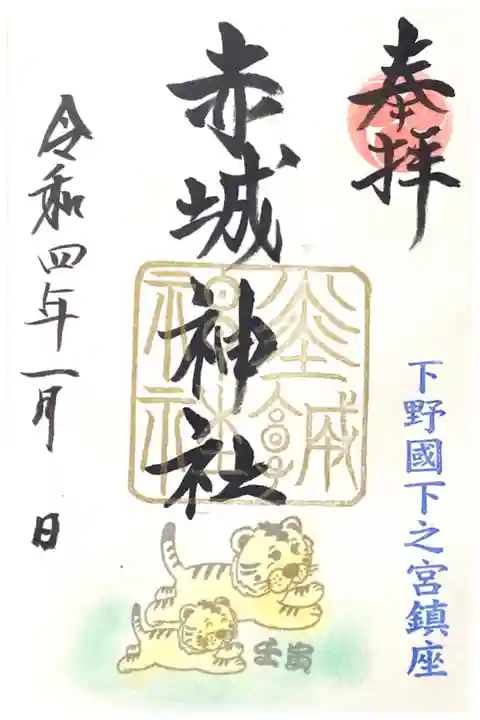 奉拝
下野國下之宮鎮座
赤城神社
令和四年一月 日
壬寅